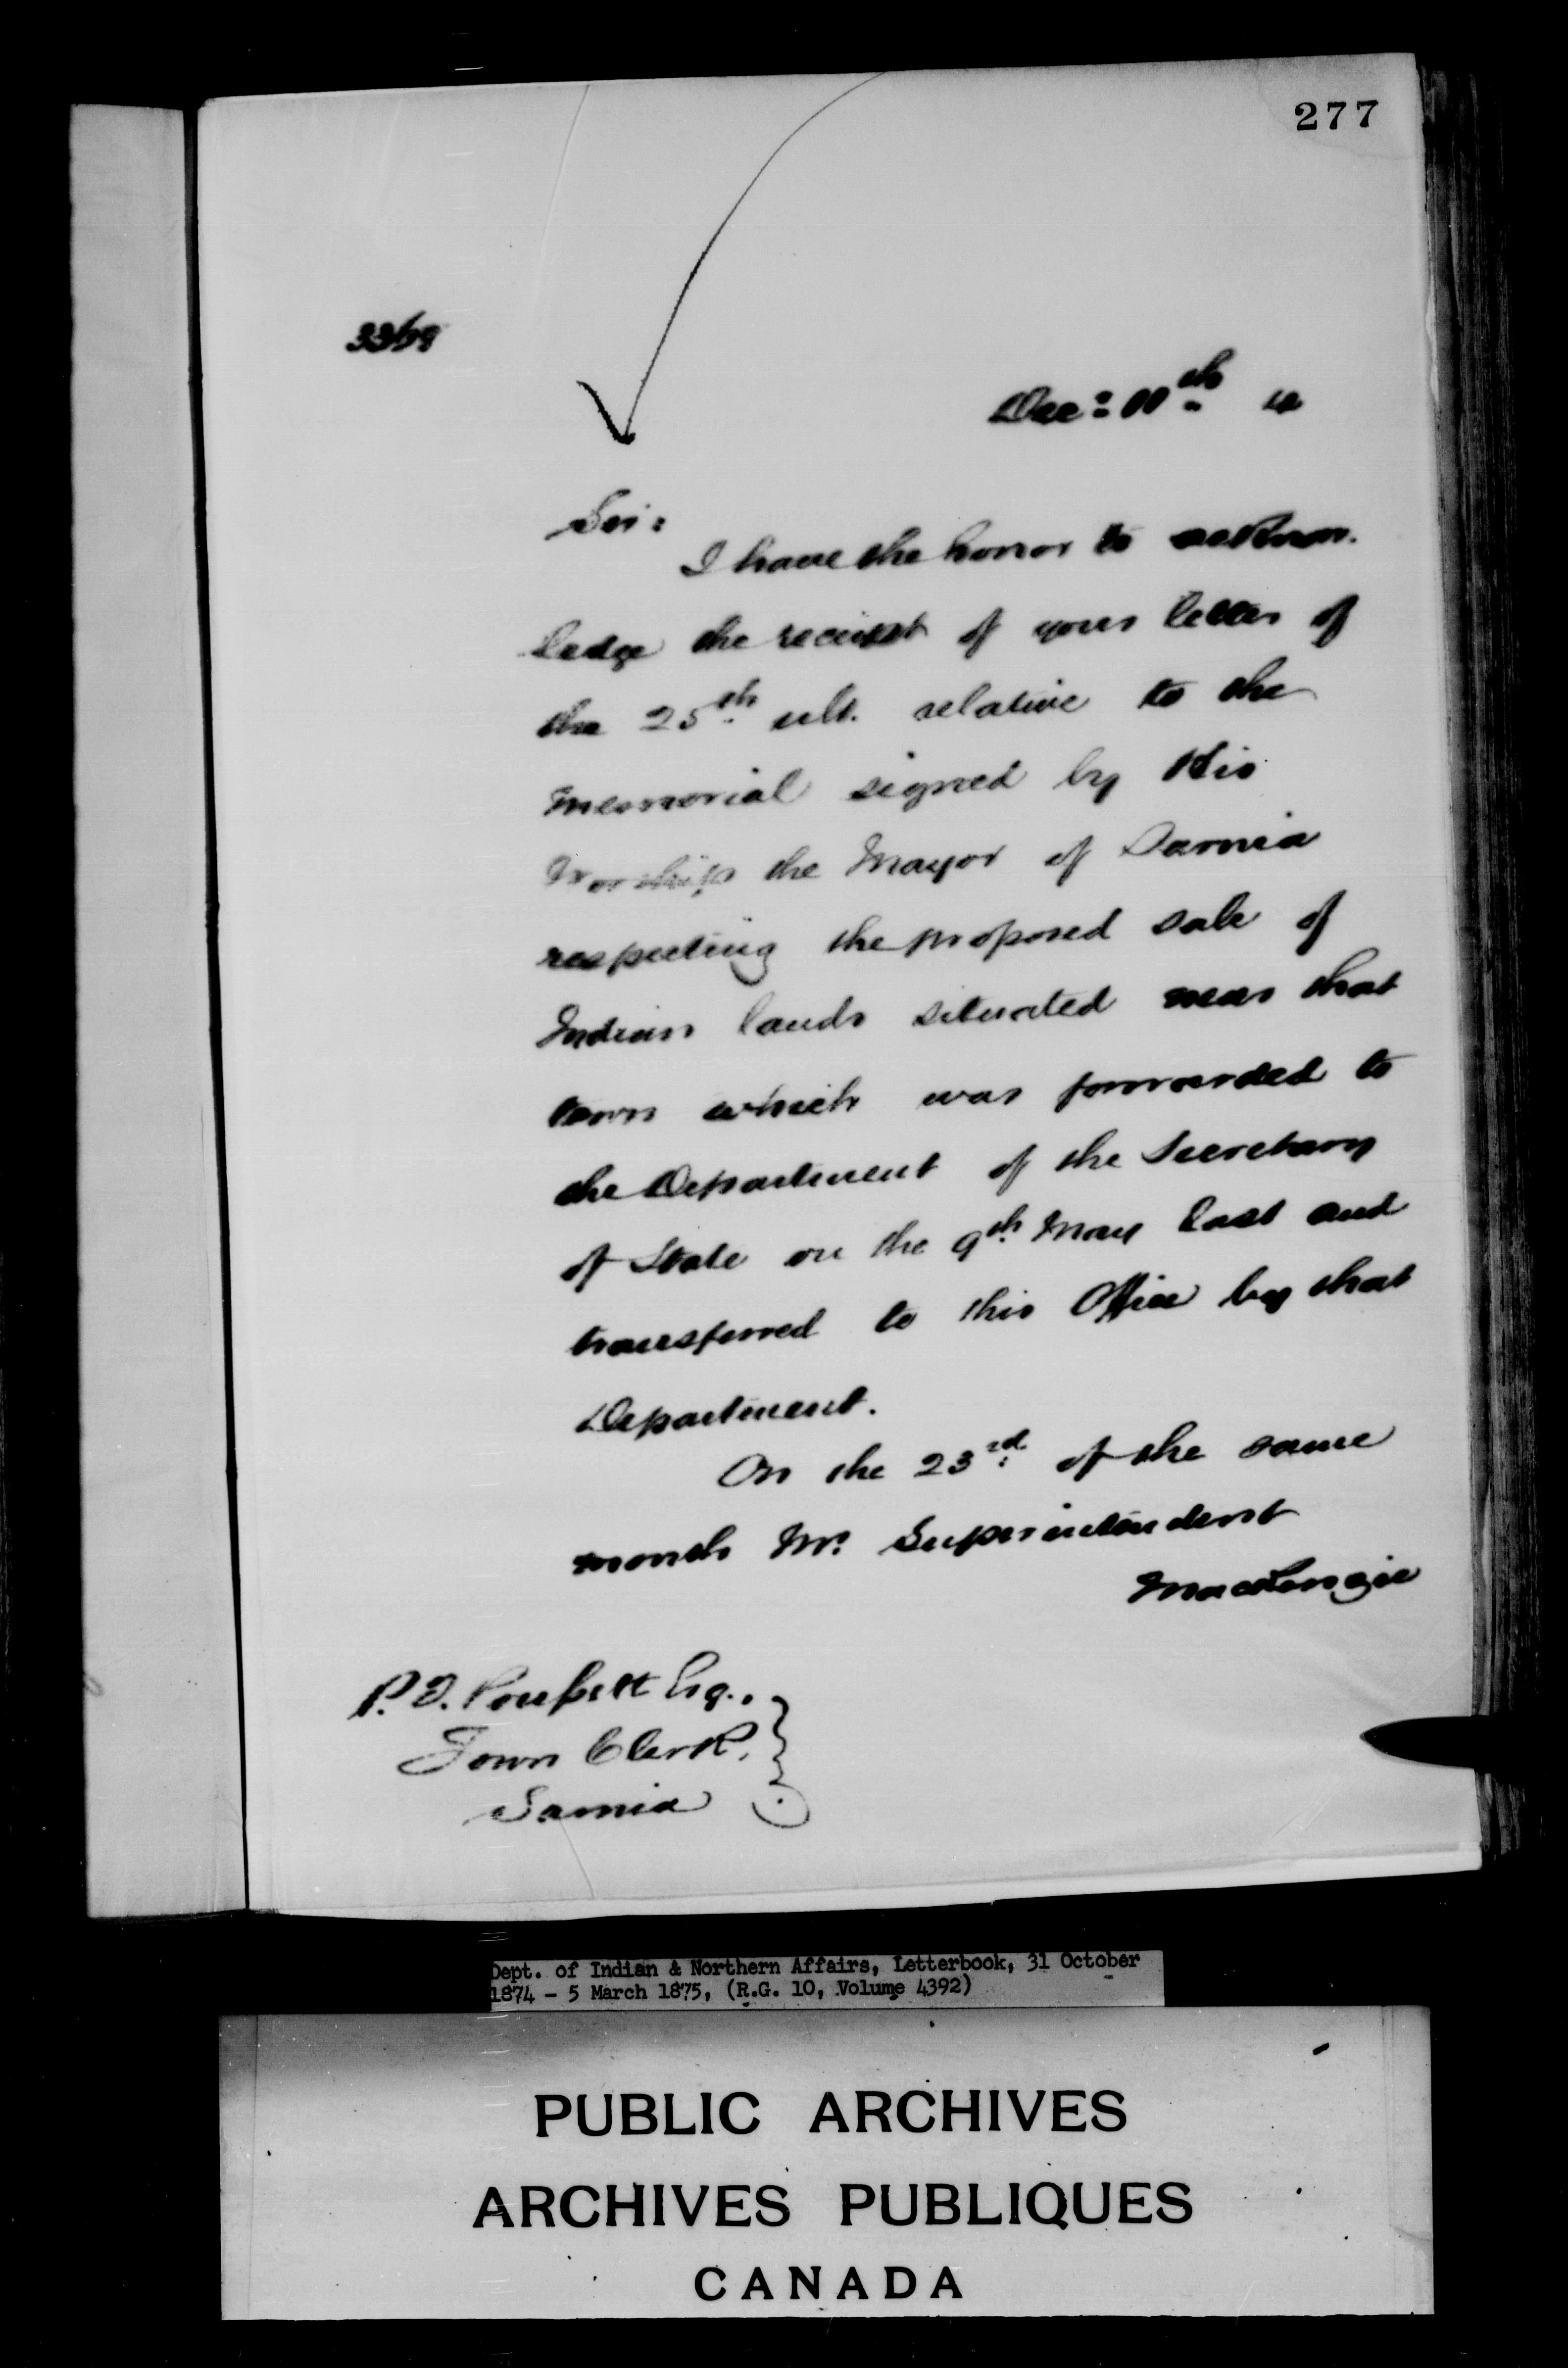 277
3368
Dec: 11th
Sir:
I have the honor to acknow-
ledge the receipt of your letter of
the 25th ult. relative to the
Memorial signed by His
Worship the Mayor of Sarnia
respecting the proposed sale of
Indian lands situated near that
town which was forwarded to
the Department of the Secretary
of State on the 9th May last and
transferred to this Office by that
Department.
On the 23rd of the same
month Mr. Superintendent
MacKenzie
P. T. Poussett Esq.,
Town Clerk,
Sarnia
Dept. of Indian & Northern Affairs, Letterbook, 31 October
1874 - 5 March 1875, (R.G. 10, Volume 4392)
PUBLIC ARCHIVES
ARCHIVES PUBLIQUES
CANADA